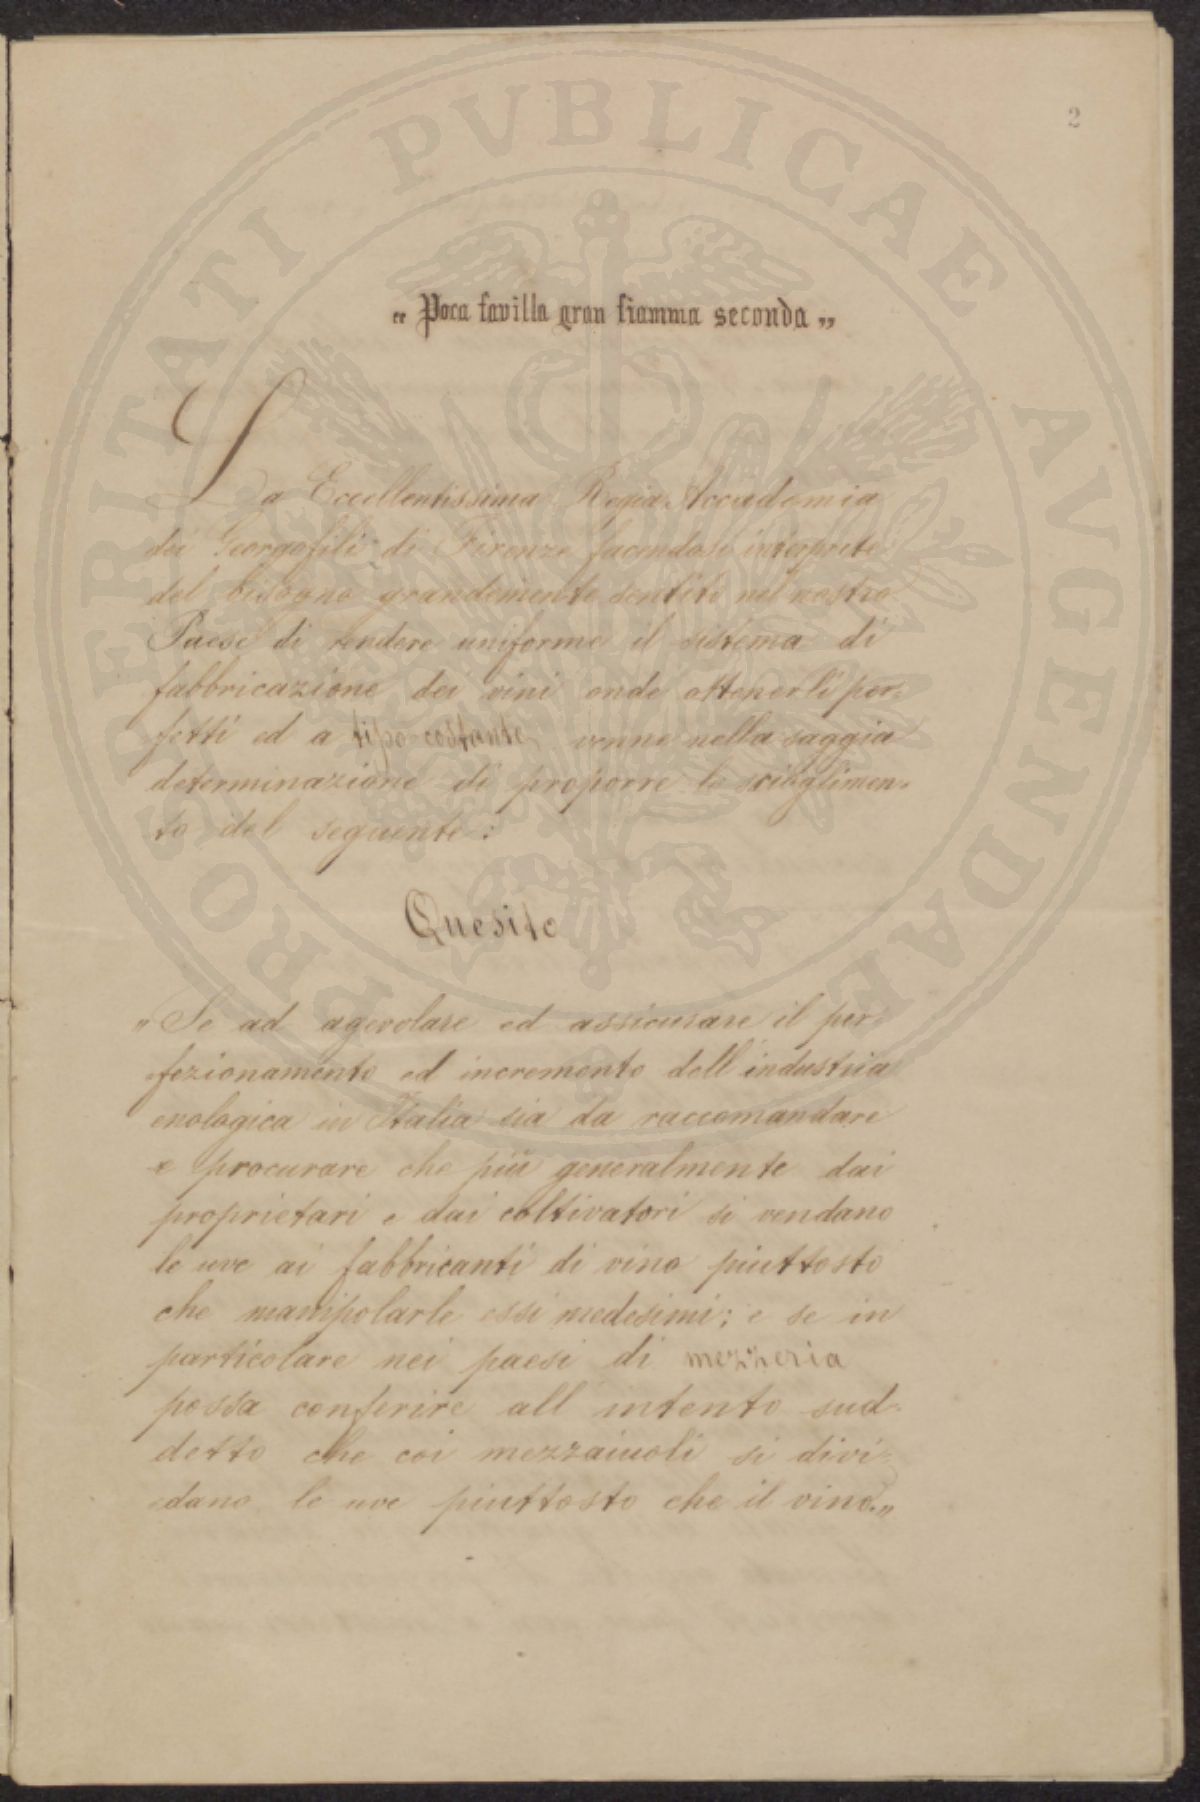 PROSPERITATI PVBLICAE AVGENDAE
2
„ Poca favilla gran fiamma seconda „
La Eccellentissima Regia Accademia
dei Georgofili di Firenze facendosi interprete
del bisogno grandemente sentito nel nostro
Paese di rendere uniforme il sistema di
fabbricazione dei vini onde ottenerli per-
fetti ed a tipo costante, venne nella saggia
determinazione di proporre lo scioglimen-
to del seguente:
Quesito
„ Se ad agevolare ed assicurare il per-
fezionamento ed incremento dell'industria
enologica in Italia sia da raccomandare
e procurare che più generalmente dai
proprietari e dai coltivatori si vendano
le uve ai fabbricanti di vino piuttosto
che manipolarle essi medesimi; e se in
particolare nei paesi di mezzeria
possa conferire all'intento sud-
detto che coi mezzaiuoli si divi-
dano le uve piuttosto che il vino.„